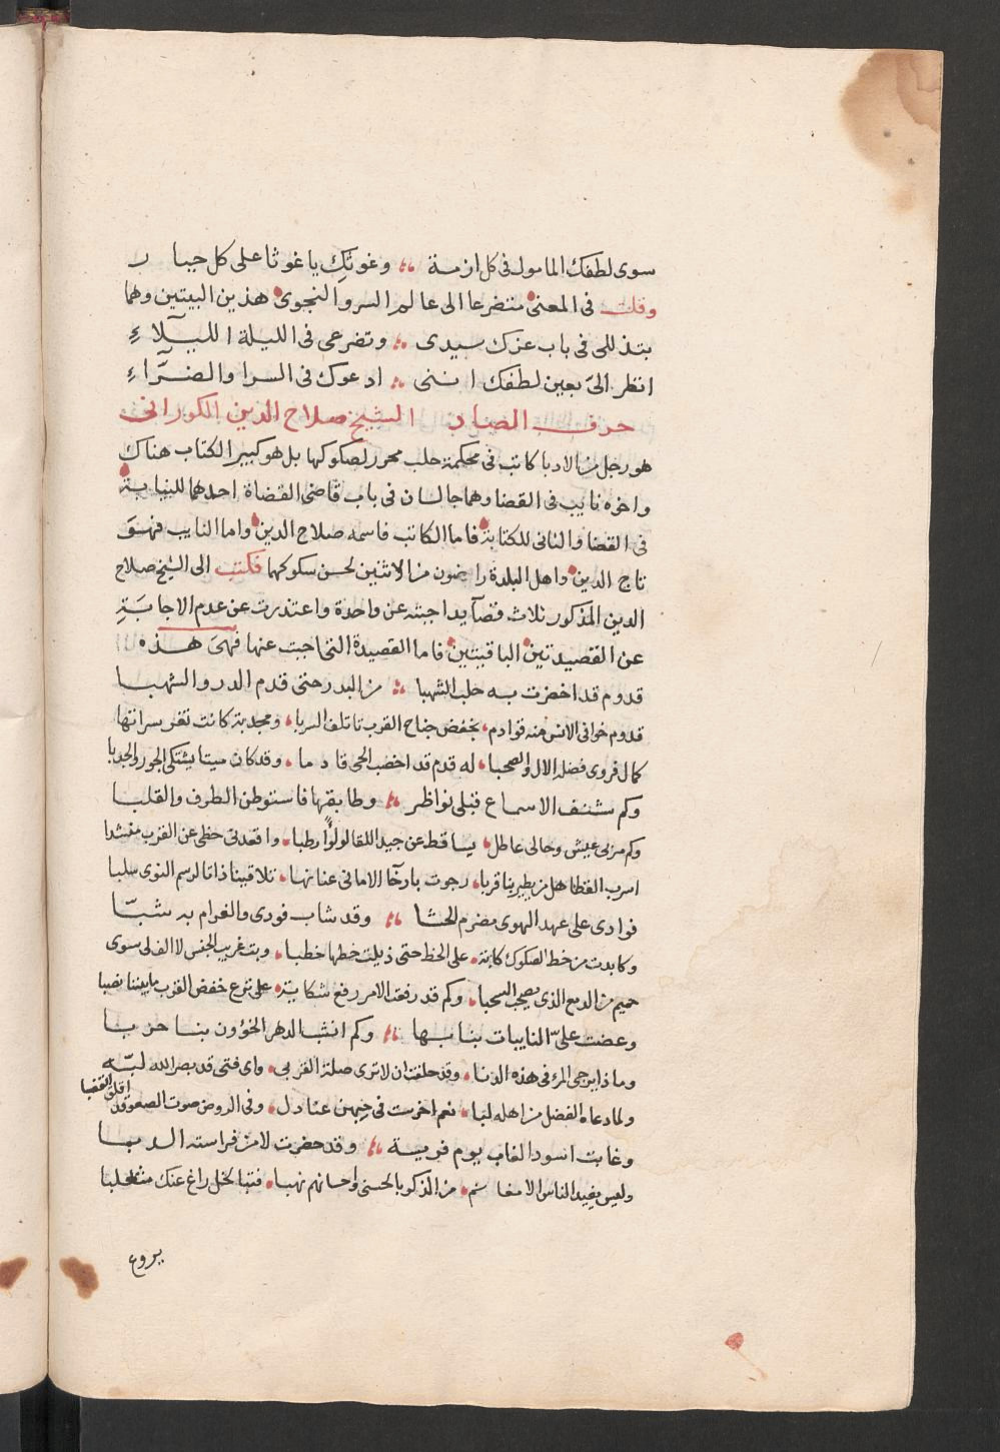 سوى لطفك المامول في كل ازمة وغوثك يا غوثا على كل جبار
وقلت في المعنى متضرعا الى عالم السر والنجوى هذين البيتين وهما
بتذللى في باب عزك سيدى وتضرعى في الليلة الليلاء
انظر الىّ بعين لطفك اننى ادعوك في السرا والضرّاء
حرف الصاد الشيخ صلاح الدين الكورانى
هو رجل من الادبا كاتب في محكمة حلب محرر لصكوكها بل هو كبير الكتاب هناك
واخوه نايب في القضا وهما جالسان في باب قاضى القضاة احدهما للنيابة
في القضا والثانى للكتابة فاما الكاتب فاسمه صلاح الدين واما النايب فهو
تاج الدين واهل البلدة راضون من الاثنين لحسن سكوكها فكتب الى الشيخ صلاح
الدين المذكور ثلاث قصآيد اجبته عن واحدة واعتذرت عن عدم الاجابة
عن القصيدتين الباقيتين فاما القصيدة التى اجبت عنها فهى هذه
قدوم قد اخضرت به حلب الشهبا من البدر حتى قدم الدر والشهبا
قدوم خوافى الانس منه قوادم بخفض جناح القرب تاتلف السربا ومجدبة كانت ثغر سراتها
كمال فروى فضله الال والصحبا له قدم قد اخضب الحى قادما وقد كان ميتا يشتكى الجور والجدبا
وكم شنف الاسماع قبلى نواظر وطابقها فاستوطن الطرف والقلبا
وكم من لى عيش وحالى عاطل يساقط عن جيد اللقا لولوًا رطبا واقعدنى حظى عن القرب منشدا
اسرب القطا هل من يطير بنا قربا رجوت بارخا الامانى عنانها تلاقينا ذاتا لرسم النوى سلبا
فوادى على عهد الهوى مضرم الحشا وقد شاب فودى والغرام به شبّا
وكابدت من خط الصكوك كابة على الخط حتى ذيلت خطها خطبا وبت غريب الجنس لا الف لى سوى
حميم من الدمع الذى يصحب السحبا وكم قد رفعت الامر رفع شكاية على نزع خفض القرب ما بيننا نصبا
وعضت علىّ النايبات بنابها وكم انشب الدهر الخؤون بنا حربا
وماذا يرجى المرء في هذه الدنا وقد حلفت ان لا ترى صلة القربى واى فتى قد بصر الله لبّه
ولما دعاه الفضل من اهله لبا نعم اخرست في حيهن عنادل وفى الروض صوت الصعو قد اقلق القضبا
وغابت اسود الغاب يوم فريسة وقد حضرت لا من فراسته الدبا
وليس يفيد الناس الا مغانم من الذكر بالحسنى واحسانهم نهبا فتبا لخل راغ عنك مثعلبا
يروع